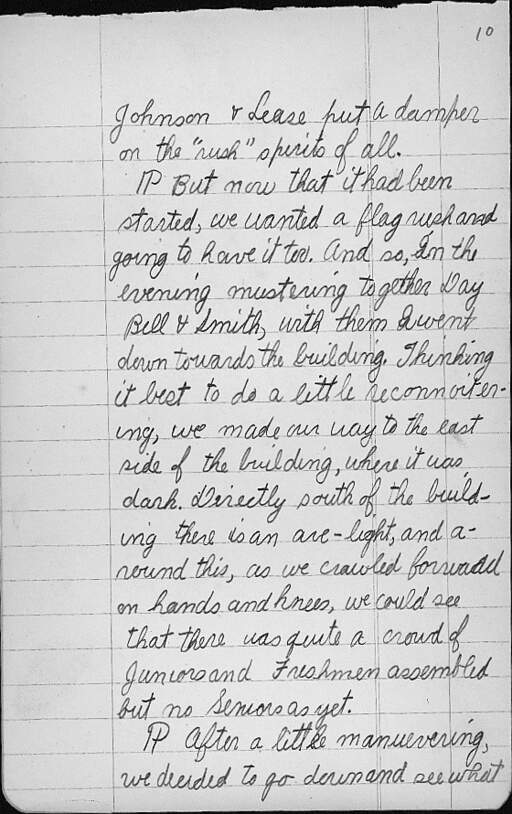 10
Johnson & Lease put a damper
on the "rush" spirits of all.
IP But now that it had been
started, we wanted a flag rush and
going to have it too. And so, in the
evening mustering together Day
Bell & Smith, with them I went
down towards the building. Thinking
it best to do a little reconnoiter-
ing, we made our way to the east
side of the building, where it was
dark. Directly south of the build-
ing there is an arc-light, and a-
round this, as we crawled forward
on hands and knees, we could see
that there was quite a crowd of
Juniors and Freshmen assembled
but no Seniors as yet.
IP After a little manuevering,
we decided to go down and see what